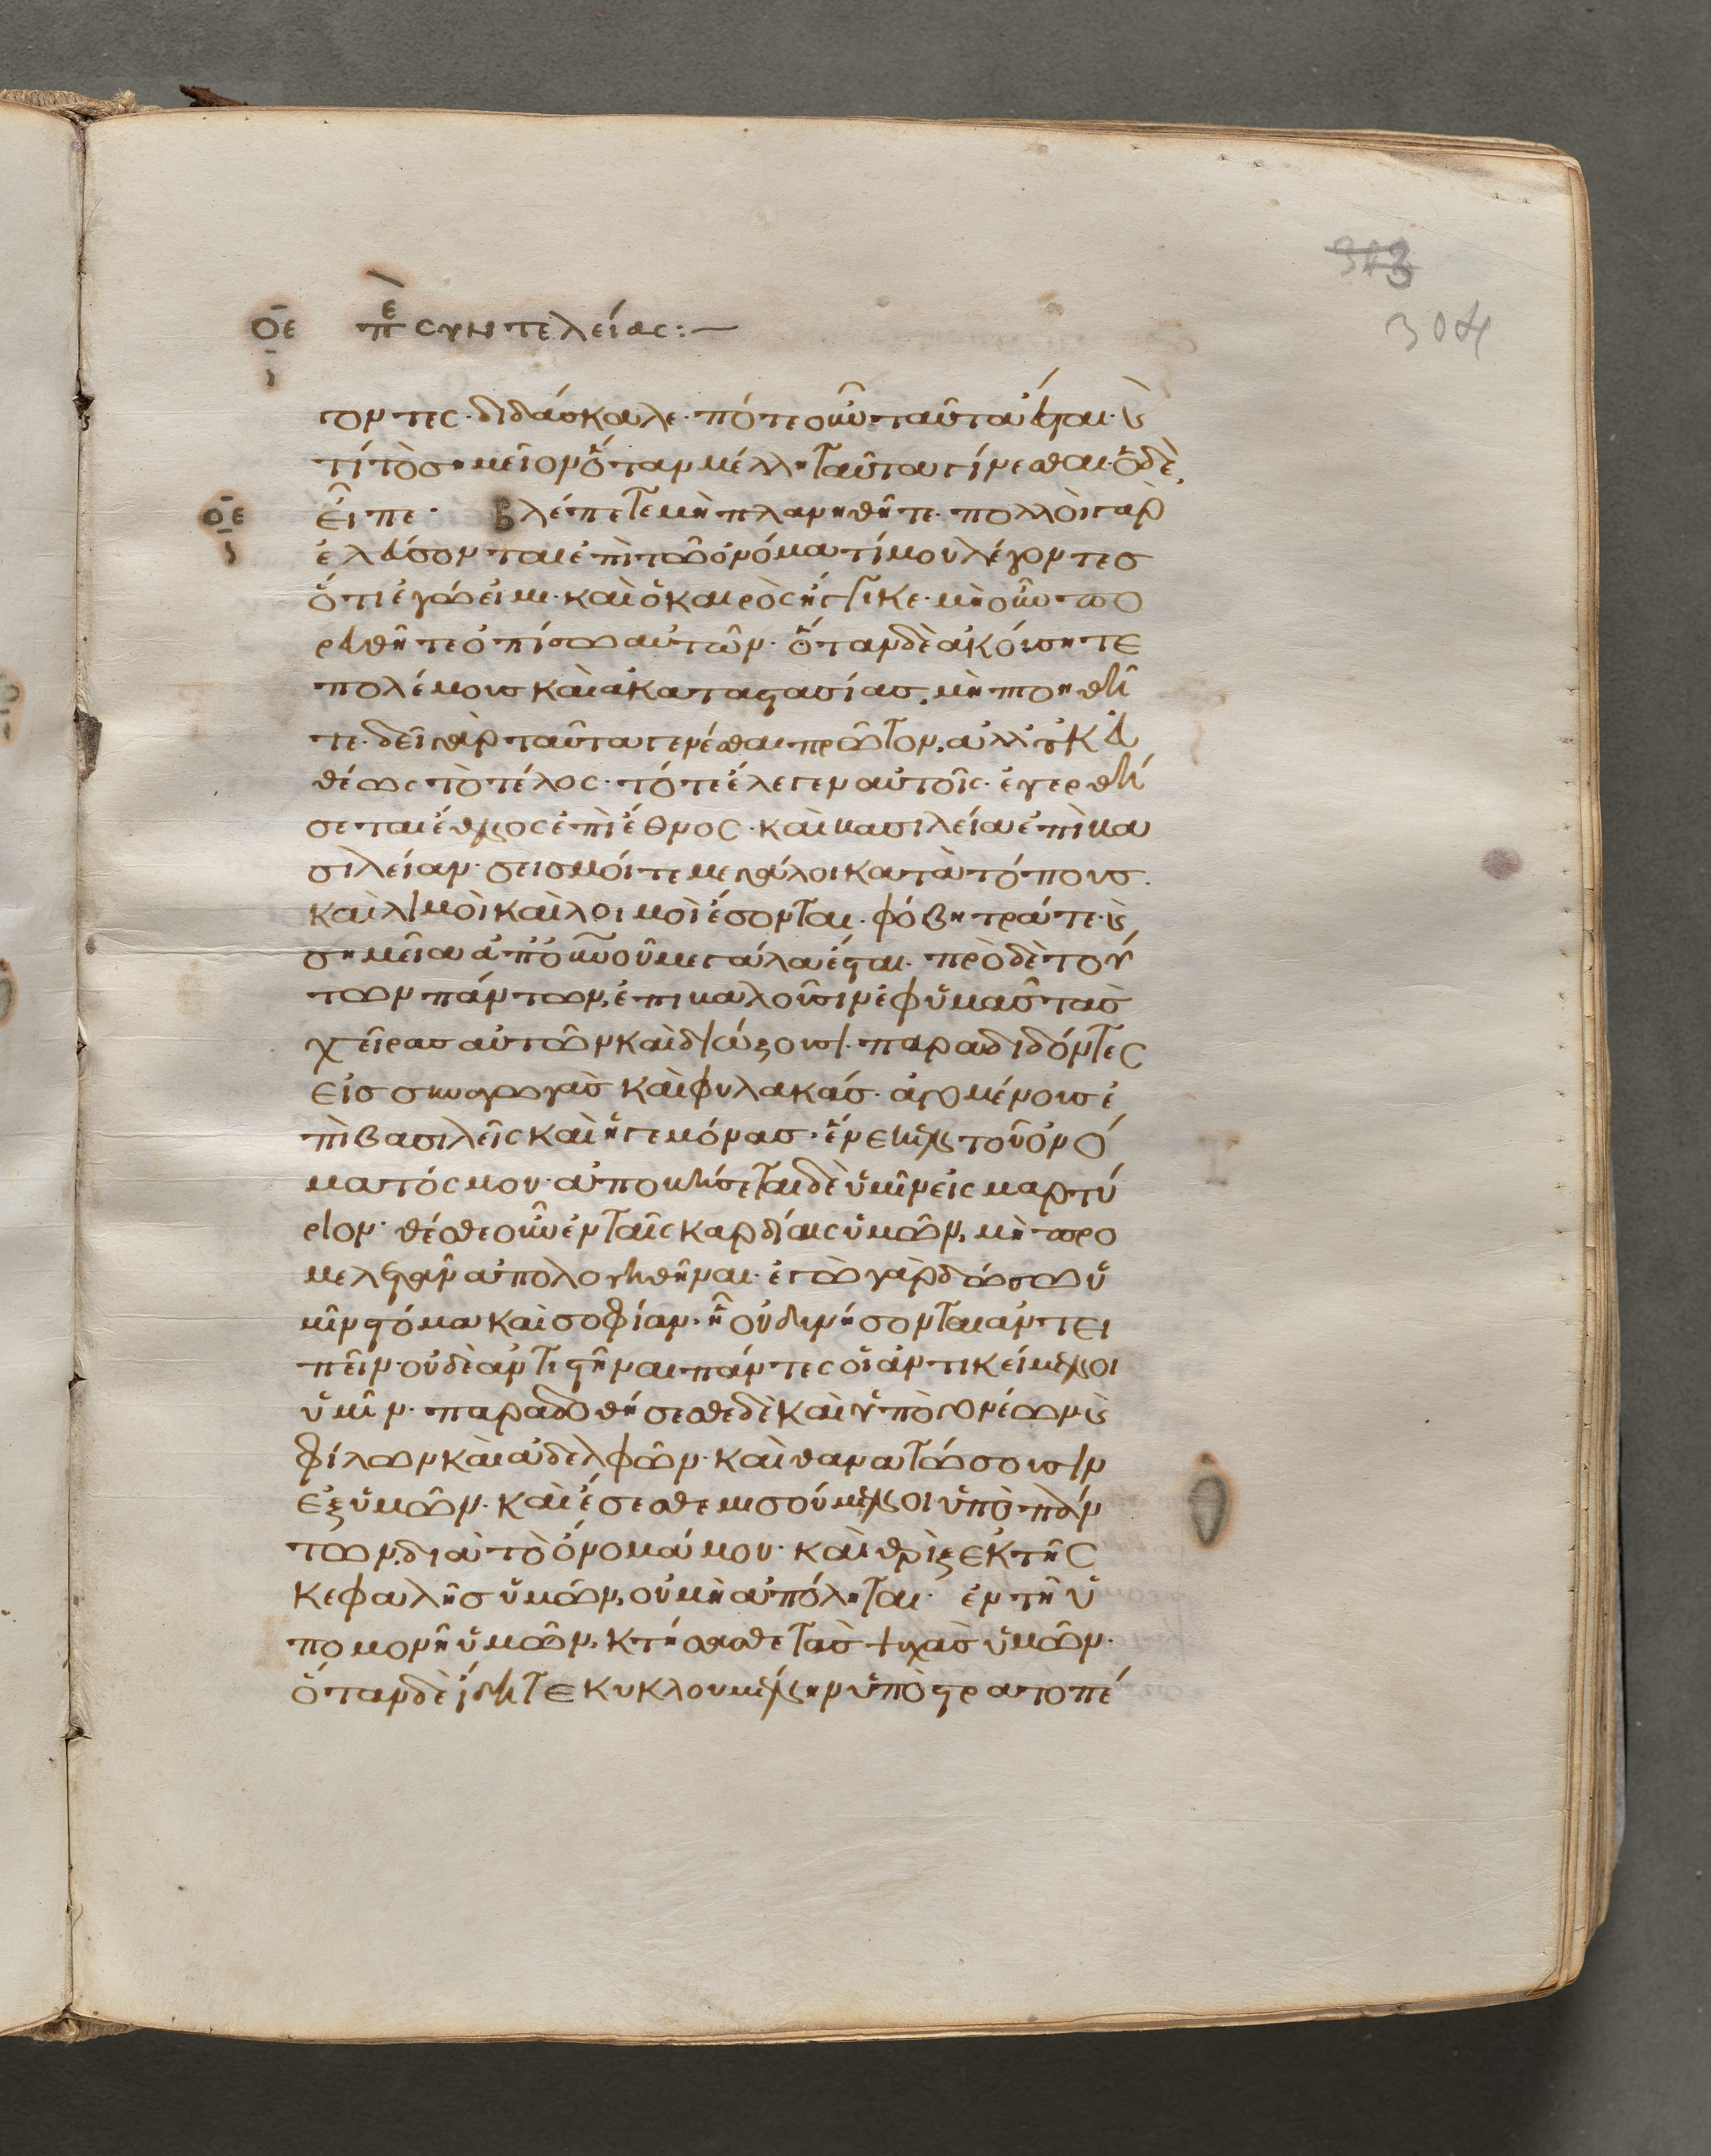 303
304
ο̅ε̅ πε συντελείας:—
τον τες· διδάσκαλε· πότε οὖν ταῦτα ἔσται· κ(αὶ)
τί τὸ σημεῖον ὅταν μέλλη ταῦτα γίνεσθαι· ὁ δὲ,
ο̅ε̅ εἶπε· Βλέπετε μὴ πλανηθῆτε· πολλοὶ γὰρ
ἐλεύσονται ἐπὶ τῶ ὀνόματί μου λέγοντες
ὅτι ἐγώ εἰμι· καὶ ὁ καιρὸς ἤγγικε· μὴ οὖν πο
ρευθῆτε ὀπίσω αὐτῶν· ὅταν δὲ ἀκούσητε
πολέμους καὶ ἀκαταστασίας, μὴ πτοηθῆ
τε· δεῖ γὰρ ταῦτα γενέσθαι πρῶτον, ἀλλ οὐκ εὐ
θέως τὸ τέλος· τότε ἔλεγεν αὐτοῖς· ἐγερθή
σεται ἔθνος ἐπὶ ἔθνος· καὶ βασιλεία ἐπὶ βα
σιλείαν· σεισμοί τε μεγάλοι κατὰ τόπους·
καὶ λιμοὶ καὶ λοιμοὶ ἔσονται· φόβητρά τε κ(αὶ)
σημεῖα ἀπὸ οὐνοῦ μεγάλα ἔσται· πρὸ δὲ τού
των πάντων, ἐπιβαλοῦσιν ἐφ ὑμᾶς τὰς
χεῖρας αὐτῶν καὶ διώξουσι· παραδιδόντες
εἰς συναγωγὰς καὶ φυλακάς· ἀγομένους ἐ
πὶ βασιλεῖς καὶ ἡγεμόνας· ἕνεκεν τοῦ ὀνό
ματός μου· ἀποβήσεται δὲ ὑμῖν εἰς μαρτύ
ριον· θέσθε οὖν ἐν ταῖς καρδίαις ὑμῶν, μὴ προ
μελετᾶν ἀπολογηθῆναι· ἐγὼ γὰρ δώσω ὑ
μῖν στόμα καὶ σοφίαν, ἧ οὐ δυνήσονται ἀντει
πεῖν· οὐδὲ ἀντιστῆναι πάντες οἱ ἀντικείμενοι
ὑμῖν· παραδοθήσεσθε δὲ καὶ ὑπὸ γονέων κ(αὶ)
φίλων καὶ ἀδελφῶν· καὶ θανατώσουσιν
ἐξ ὑμῶν· καὶ ἔσεσθε μισούμενοι ὑπὸ πάν
των, διὰ τὸ ὄνομά μου· καὶ θρὶξ ἐκ τῆς
κεφαλῆς ὑμῶν, οὐ μὴ ἀπόληται· ἐν τῆ ὑ
πομονῆ ὑμῶν, κτήσασθε τὰς ψυχὰς ὑμῶν·
ὅταν δὲ ἴδητε κυκλουμένην ὑπὸ στρατοπέ